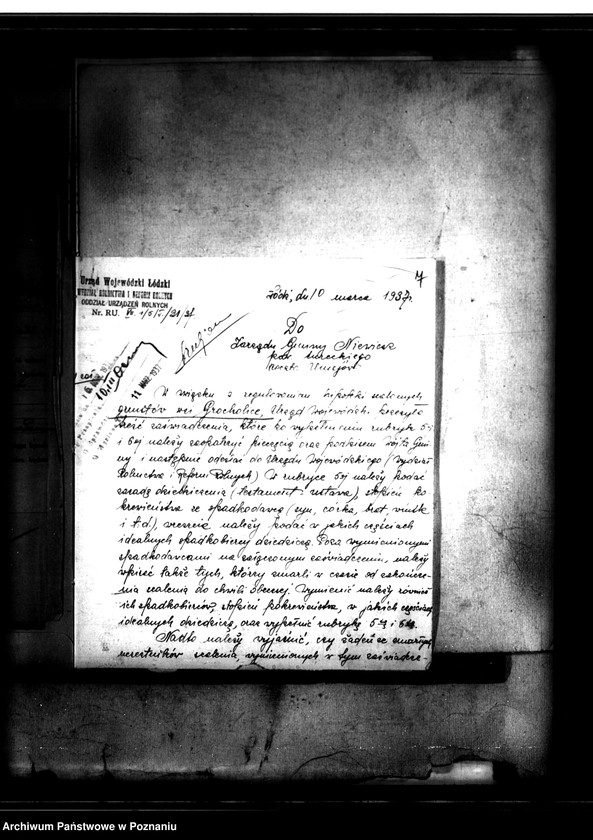 7
Urząd Wojewódzki Łódzki
WYDZIAŁ ROLNICTWA I REFORM ROLNYCH
ODDZIAŁ URZĄDZEŃ ROLNYCH
Nr. RU.
Łódź, dn. 10 marca 1937 r.
11 MAR 1937
Do
Zarządu Gminy Niewiesz
pow. tureckiego
poczt. Uniejów
W związku z regulowaniem hipoteki scalonych
gruntów wsi Grocholice, Urząd Wojewódzki
treść zaświadczenia, które po wypełnieniu rubryk 5-ej
i 6ej należy zaopatrzyć pieczęcią oraz podpisem Wójta Gmi-
ny i następnie odesłać do Urzędu Wojewódzkiego (Wydział
Rolnictwa i Reform Rolnych) W rubryce 5ej należy podać
zasadę dziedziczenia (testament, ustawa), stopień po-
krewieństwa ze spadkodawcą (syn, córka, brat, wnuk
i t.d.), wreszcie należy podać w jakich częściach
idealnych spadkobiercy dziedziczą. Poza wymienionymi
spadkodawcami na załączonym zaświadczeniu, należy
wpisać także tych, którzy zmarli w czasie od zakończe-
nia scalenia do chwili obecnej. Wymienić należy również
ich spadkobierców, stopień pokrewieństwa, w jakich częściach
idealnych dziedziczą, oraz wypełnić rubrykę 5-ą i 6-ą.
Nadto należy wyjaśnić, czy żaden ze zmarłych
uczestników scalenia, wymienionych w tym zaświadcze-
Archiwum Państwowe w Poznaniu